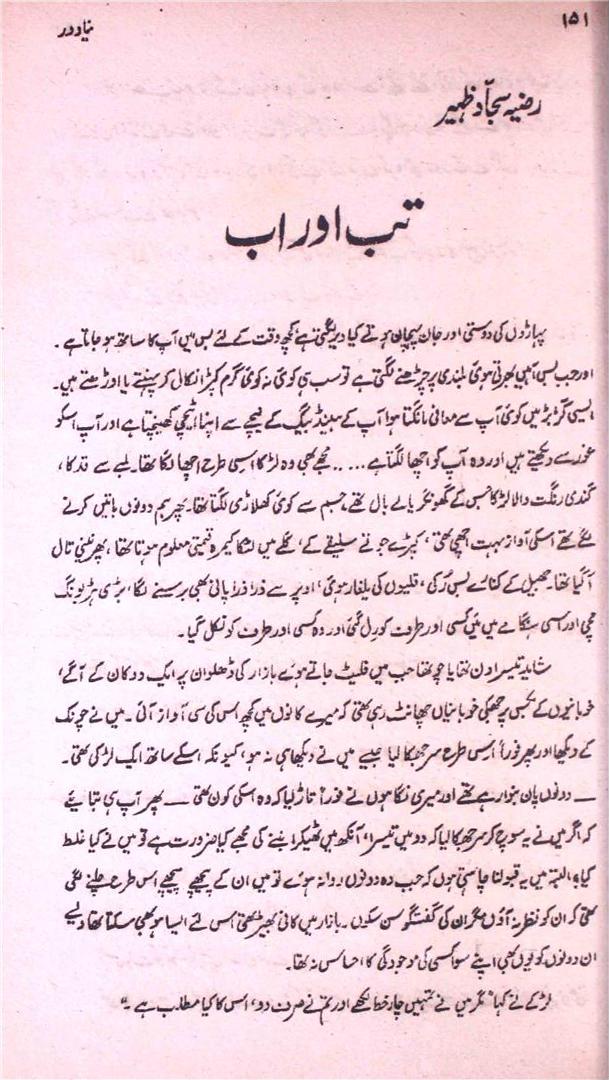 ۱۵۱
نیا دور
رضیہ سجّاد ظہیر
تب اور اب
پہاڑوں کی دوستی اور جان پہچان ہوتے کیا دیر لگتی ہے، کچھ وقت کے لئے بس میں آپ کا ساتھ ہو جاتا ہے۔
اور جب بس، آہیں بھرتی ہوئی بلندی پر چڑھنے لگتی ہے تو سب ہی کوئی نہ کوئی گرم کپڑا نکال کر پہنتے یا اوڑھتے ہیں۔
ایسی گڑبڑ میں کوئی آپ سے معافی مانگتا ہوا آپ کے ہینڈ بیگ کے نیچے سے اپنا اٹیچی کھینچتا ہے اور آپ اسکو
غور سے دیکھتے ہیں اور وہ آپ کو اچھا لگتا ہے.... مجھے بھی وہ لڑکا اسی طرح اچھا لگا تھا۔ لمبے سے قد کا،
گندمی رنگت والا لڑکا جس کے گھونگریالے بال تھے، جسم سے کوئی کھلاڑی لگتا تھا۔ پھر ہم دونوں باتیں کرنے
لگے تھے اسکی آواز بہت اچھی تھی، کپڑے جوتے سلیقے کے، گلے میں لٹکا کیمرہ قیمتی معلوم ہوتا تھا، پھر نینی تال
آ گیا تھا۔ جھیل کے کنارے بس رُکی، قلیوں کی یلغار ہوئی، اوپر سے ذرا ذرا پانی بھی برسنے لگا، بڑی ہڑبونگ
مچی اور اسی ہنگامے میں میں کسی اور طرف کو رل گئی اور وہ کسی اور طرف کو نکل گیا۔
شاید تیسرا دن تھا یا چوتھا جب میں فلیٹ جاتے ہوئے بازار کی ڈھلوان پر ایک دوکان کے آگے،
خوبانیوں کے بکس پر جھکی خوبانیاں چھانٹ رہی تھی کہ میرے کانوں میں کچھ اس کی سی آواز آئی۔ میں نے چونک
کے دیکھا اور پھر فوراً اسی طرح سر جھکا لیا جیسے میں نے دیکھا ہی نہ ہو، کیونکہ اسکے ساتھ ایک لڑکی تھی۔
— دونوں پان بنوا رہے تھے اور میری نگاہوں نے فوراً تاڑ لیا کہ وہ اسکی کون تھی — پھر آپ ہی بتایئے
کہ اگر میں نے یہ سوچ کر سر جھکا لیا کہ دو میں تیسرا، آنکھ میں ٹھیکرا بننے کی مجھے کیا ضرورت ہے تو میں نے کیا غلط
کیا؟ البتہ میں یہ قبولنا چاہتی ہوں کہ جب وہ دونوں روانہ ہوئے تو میں ان کے پیچھے پیچھے اس طرح چلنے لگی
تھی کہ ان کو نظر نہ آؤں مگر ان کی گفتگو سن سکوں۔ بازار میں کافی بھیڑ تھی اس لئے ایسا ہو بھی سکتا تھا ویسے
ان دونوں کو یوں بھی اپنے سوا کسی کی موجودگی کا احساس نہ تھا۔
لڑکے نے کہا "مگر میں نے تمہیں چار خط لکھے اور تم نے صرف دو، اس کا کیا مطلب ہے۔"